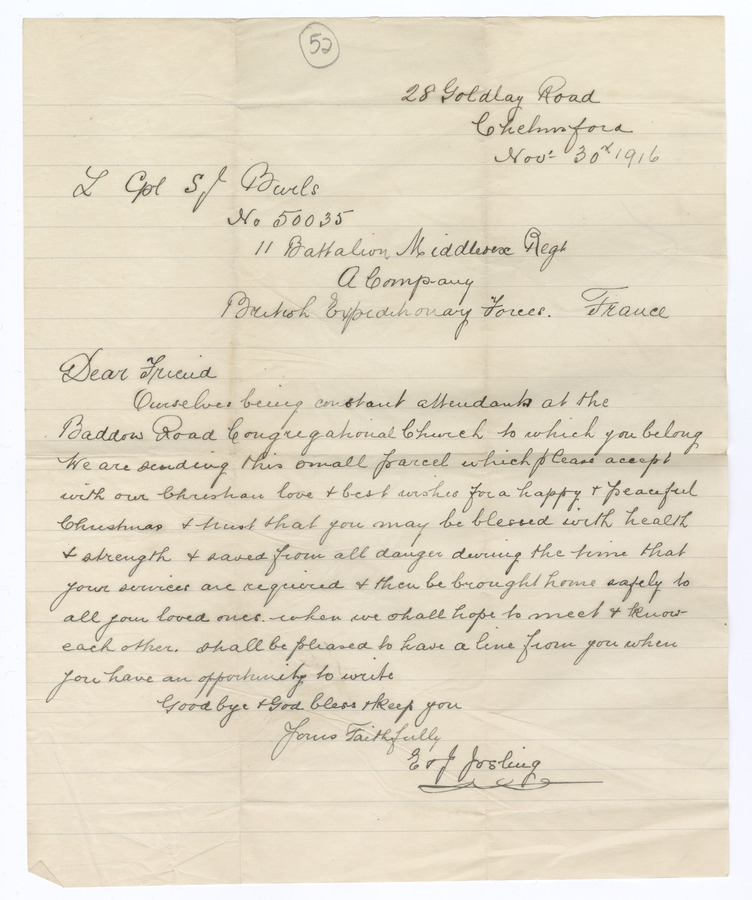 52
28 Goldlay Road
Chelmsford
Nov: 30th 1916
L Cpl S J Burls
No 50035
11 Battalion Middlesex Regt
A Company
British Expeditionary Forces. France
Dear Friend
Ourselves being constant attendants at the
Baddow Road Congregational Church to which you belong
We are sending this small parcel which please accept
with our Christian love & best wishes for a happy & peaceful
Christmas & trust that you may be blessed with health
& strength & saved from all danger during the time that
your services are required & then be brought home safely to
all your loved ones. when we shall hope to meet & know
each other. shall be pleased to have a line from you when
you have an opportunity to write
Goodbye & God bless & keep you
Yours Faithfully
E & J Josling